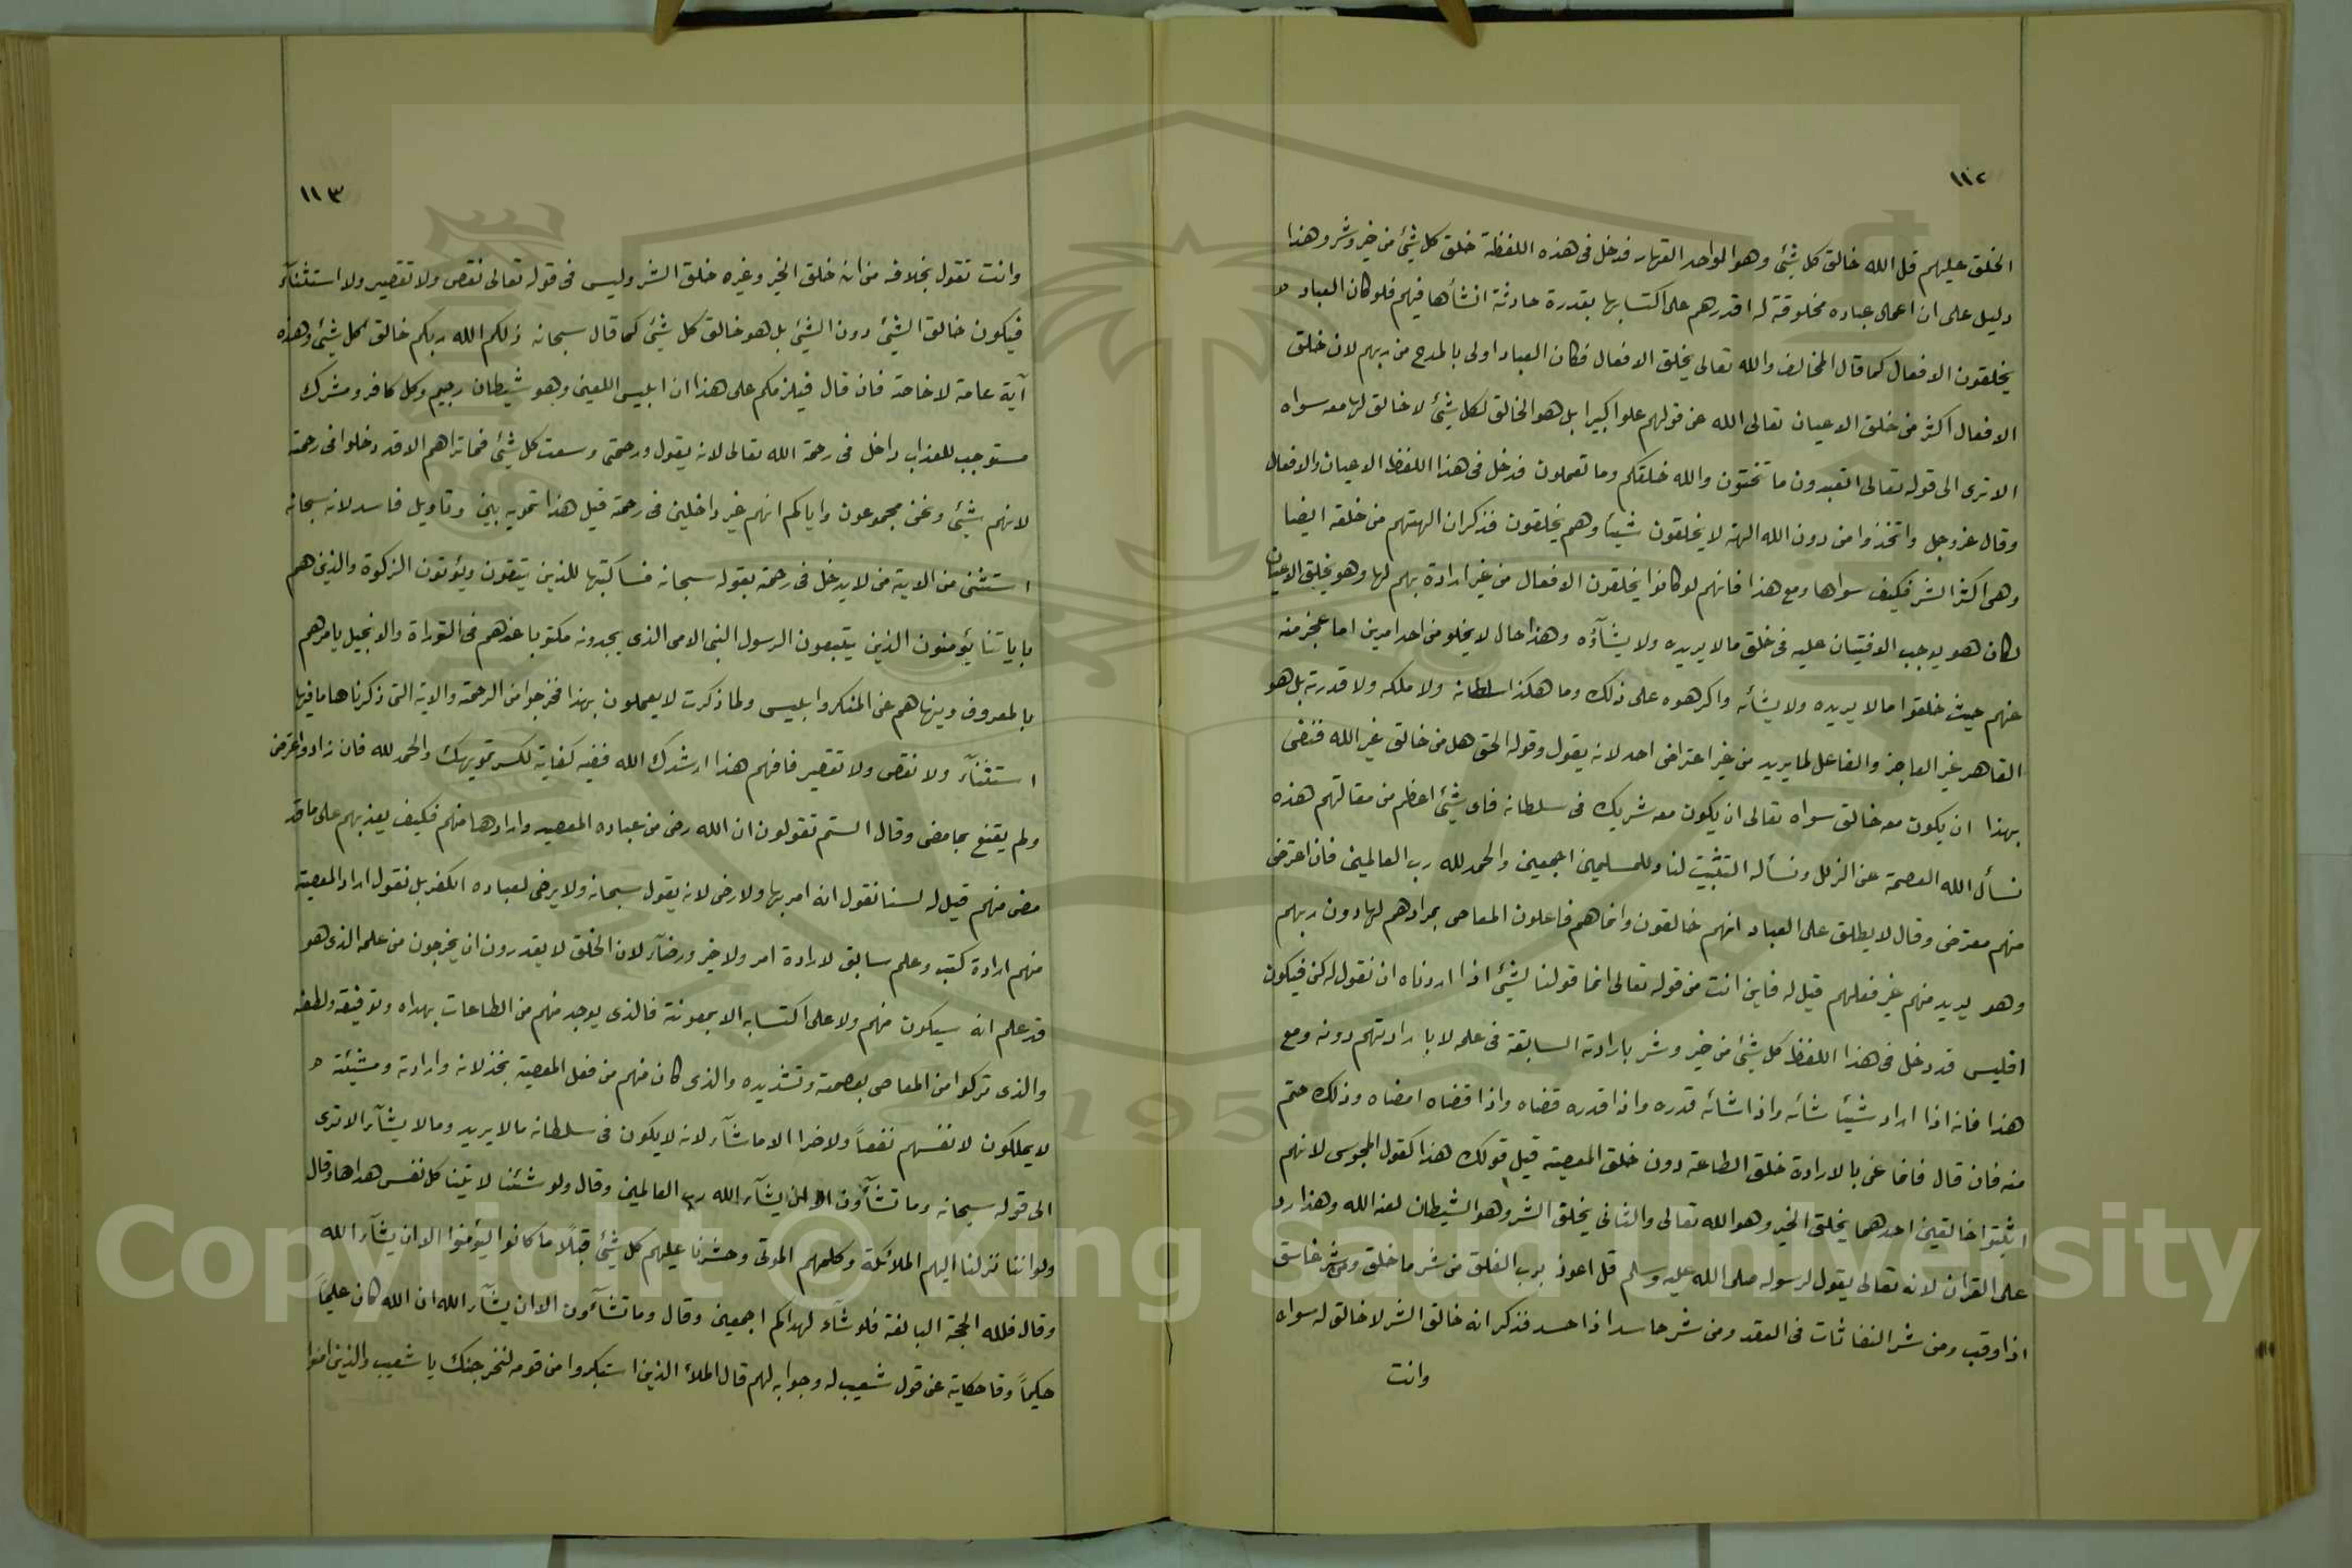 ١١٢
الخلق عليهم قل الله خالق كل شيئ وهو الواحد القهار فدخل فى هذه اللفظة خلق كل شيئ من خير وشر وهذا
دليل على ان اعمال عباده مخلوقة له اقدرهم على اكتسابها بقدرة حادثة انشأها فيهم فلو كان العباد
يخلقون الافعال كما قال المخالف والله تعالى يخلق الافعال فكان العباد اولى بالمدح من ربهم لان خلق
الافعال اكثر من خلق الاعيان تعالى الله عن قولهم علوا كبيرا بل هو الخالق لكل شيئ لا خالق لها معه سواه
الا ترى الى قوله تعالى اتعبدون ما تنحتون والله خلقكم وما تعملون فدخل فى هذا اللفظ الاعيان والافعال
وقال عز وجل واتخذوا من دون الله الهة لا يخلقون شيئا وهم يخلقون فذكر ان الهتهم من خلقه ايضا
وهى اكثر الشر فكيف سواها ومع هذا فانهم لو كانوا يخلقون الافعال من غير ارادة ربهم لها وهو يخلق الاعيان
لكان هو يوجب الافتيان عليه فى خلق ما لا يريده ولا يشآؤه وهذا حال لا يخلو من احد امرين اما عجز منه
عنهم حيث خلقوا ما لا يريده ولا يشائه واكرهوه على ذلك وما هكذا سلطانه ولا ملكه ولا قدرته بل هو
القاهر غير العاجز والفاعل لما يريد من غير اعتراض احد لانه يقول وقوله الحق هل من خالق غير الله فنفى
بهذا ان يكون معه خالق سواه تعالى ان يكون معه شريك فى سلطانه فاى شيئ اعظم من مقالتهم هذه
نسأل الله العصمة عن الزلل ونسأله التثبيت لنا وللمسلمين اجمعين والحمد لله رب العالمين فان اعترض
منهم معترض وقال لا يطلق على العباد انهم خالقون وانما هم فاعلون المعاصى بمرادهم لها دون ربهم
وهو يريد منهم غير فعلهم قيل له فاين انت من قوله تعالى انما قولنا لشيئ اذا اردناه ان نقول له كن فيكون
افليس قد دخل فى هذا اللفظ كل شيئ من خير وشر بارادته السابقة فى علمه لا بارادتهم دونه ومع
هذا فانه اذا اراد شيئا شائه واذا شائه قدره واذا قدره قضاه واذا قضاه امضاه وذلك حتم
منه فان قال فانما عنى بالارادة خلق الطاعة دون خلق المعصية قيل قولك هذا كقول المجوس لانهم
اثبتوا خالقين احدهما يخلق الخير وهو الله تعالى والثانى يخلق الشر وهو الشيطان لعنه الله وهذا رد
على القران لانه تعالى يقول لرسوله صلى الله عليه وسلم قل اعوذ برب الفلق من شر ما خلق ومن شر غاسق
اذا وقب ومن شر النفاثات فى العقد ومن شر حاسد اذا حسد فذكر انه خالق الشر لا خالق له سواه
وانت
١١٣
وانت تقول بخلافه من انه خلق الخير وغيره خلق الشر وليس فى قوله تعالى نقص ولا تقصير ولا استثنآء
فيكون خالق الشيئ دون الشيئ بل هو خالق كل شيئ كما قال سبحانه ذلكم الله ربكم خالق كل شيئ وهذه
آية عامة لا خاصة فان قال فيلزمكم على هذا ان ابليس اللعين وهو شيطان رجيم وكل كافر ومشرك
مستوجب للعذاب داخل فى رحمة الله تعالى لانه يقول ورحمتى وسعت كل شيئ فما تراهم الا قد دخلوا فى رحمته
لانهم شيئ ونحن مجموعون واياكم انهم غير داخلين فى رحمته قيل هذا تمويه بين وتاويل فاسد لانه سبحانه
استثنى من الاية من لا يدخل فى رحمته بقوله سبحانه فساكتبها للذين يتقون ويؤتون الزكوة والذين هم
باياتنا يؤمنون الذين يتبعون الرسول النبى الامى الذى يجدونه مكتوبا عندهم فى التوراة والانجيل يامرهم
بالمعروف وينهاهم عن المنكر وابليس ولما ذكرت لا يعملون بهذا فخرجوا من الرحمة والاية التى ذكرناها ما فيها
استثنآء ولا نقص ولا تقصير فافهم هذا ارشدك الله ففيه كفاية لكسر تمويهك والحمد لله فان زاد واعترض
ولم يقنع بما مضى وقال الستم تقولون ان الله رضى من عباده المعصية وارادها منهم فكيف يعذبهم على ما قد
مضى منهم قيل له لسنا نقول انه امر بها ولا رضى لانه يقول سبحانه ولا يرضى لعباده الكفر بل نقول اراد المعصية
منهم ارادة كتب وعلم سابق لا ارادة امر ولا خير ورضآء لان الخلق لا يقدرون ان يخرجون من علمه الذى هو
قد علم انه سيكون منهم ولا على اكتسابه الا بمعونته فالذى يوجد منهم من الطاعات بهداه وتوفيقه ولطفه
والذى تركوا من المعاصى بعصمته وتشديده والذى كان منهم من فعل المعصية بخذلانه وارادته ومشيئته
لا يملكون لانفسهم نفعاً ولا ضرا الا ما شآء لانه لا يكون فى سلطانه ما لا يريد وما لا يشآء الا ترى
الى قوله سبحانه وما تشآؤن الا ان يشآء الله رب العالمين وقال ولو شئنا لاتينا كل نفس هداها وقال
ولو اننا نزلنا اليهم الملائكة وكلمهم الموتى وحشرنا عليهم كل شيئ قبلًا ما كانوا ليؤمنوا الا ان يشآء الله
وقال فلله الحجة البالغة فلو شآء لهداكم اجمعين وقال وما تشآءون الا ان يشآء الله ان الله كان عليماً
حكيماً وقا حكاية عن قول شعيب له وجوابه لهم قال الملأ الذين استكبروا من قومه لنخرجنك يا شعيب والذين امنوا
Copyright © King Saud University
1957